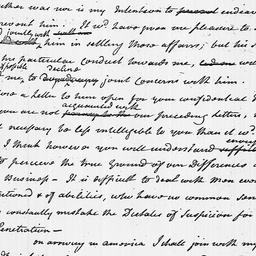 ther was nor is my Intention to endeav
 him. It wd. have given me pleasure to
jointly with
him in settling those affairs; but his
particular Conduct towards me,
decline
me, to joint Concerns with him
a letter to him open for your confidential
acquainted with
are not our preceeding Letters,
necessary be less intelligible to you than it wd.
I think however you will understand
to perceive the true Ground of our Differences
Business - It is difficult to deal with men
& of abilities, who have no common
constantly mistake the Debates of Suspicion for
Penetration -
on arriving in america I shall join with my